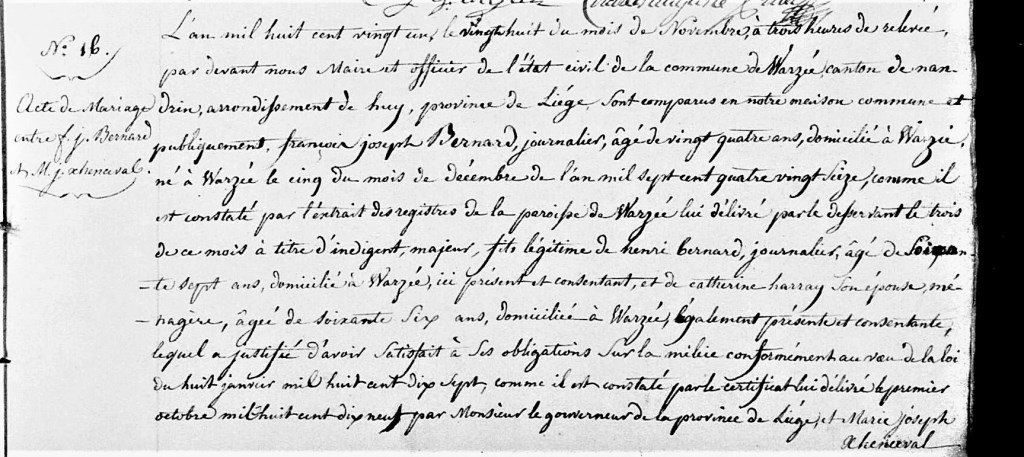 N.° 16.
Acte de Mariage
entre f. j. Bernard
et M. j. xhenceval.
L'an mil huit cent vingt un, le vingt huit du mois de Novembre, à trois heures de relevée,
par devant nous Maire et officier de l'état civil de la commune de Warzée, canton de nan-
drin, arrondissement de huy, province de Liége, sont comparus en notre maison commune et
publiquement, françois joseph Bernard, journalier, âgé de vingt quatre ans, domicilié à Warzée,
né à Warzée le cinq du mois de décembre de l'an mil sept cent quatre vingt seize, comme il
est constaté par l'extrait des registres de la paroisse de Warzée lui délivré par le desservant le trois
de ce mois à titre d'indigent, majeur, fils légitime de henri bernard, journalier, âgé de soixan-
-te sept ans, domicilié à Warzée, ici présent et consentant, et de catherine harray son épouse, mé-
-nagère, âgée de soixante six ans, domiciliée à Warzée, également présente et consentante,
lequel a justifié d'avoir satisfait à ses obligations sur la milice conformément au vœu de la loi
du huit janvier mil huit cent dix sept, comme il est constaté par le certificat lui délivré le premier
octobre mil huit cent dix neuf par Monsieur le gouverneur de la province de Liége, et Marie joseph
xhenceval